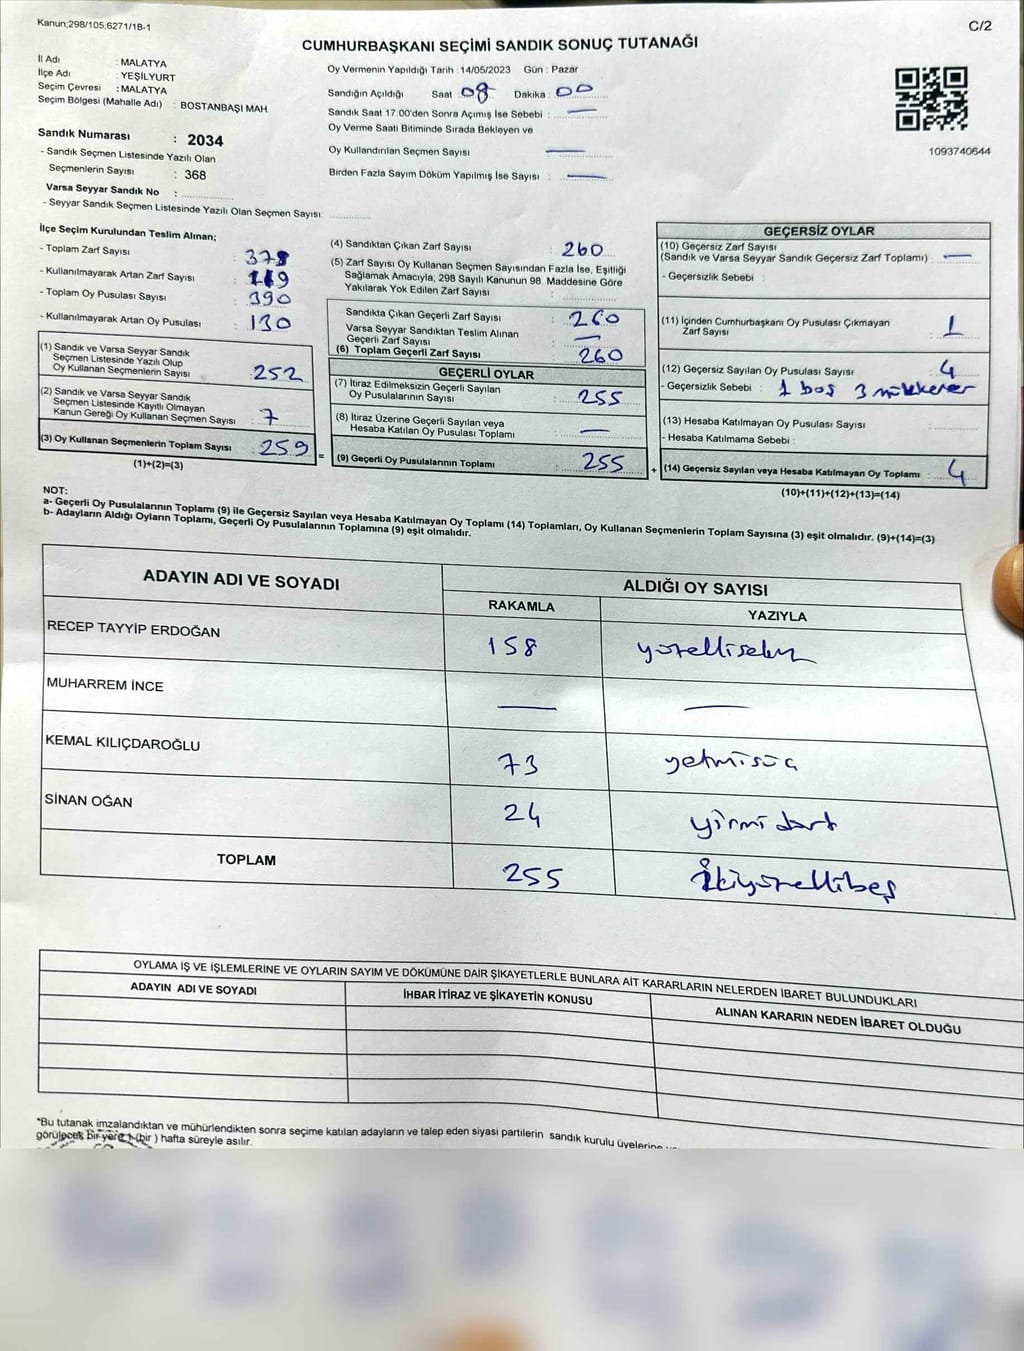 Kanun;298/105,6271/1B-1
C/2
CUMHURBAŞKANI SEÇİMİ SANDIK SONUÇ TUTANAĞI
İl Adı : MALATYA
İlçe Adı : YEŞİLYURT
Seçim Çevresi : MALATYA
Seçim Bölgesi (Mahalle Adı) : BOSTANBAŞI MAH.
Sandık Numarası : 2034
- Sandık Seçmen Listesinde Yazılı Olan
Seçmenlerin Sayısı : 368
Varsa Seyyar Sandık No :
- Seyyar Sandık Seçmen Listesinde Yazılı Olan Seçmen Sayısı:
Oy Vermenin Yapıldığı Tarih : 14/05/2023 Gün : Pazar
Sandığın Açıldığı Saat : 08 Dakika : 00
Sandık Saat 17.00'den Sonra Açımış İse Sebebi : —
Oy Verme Saati Bitiminde Sırada Bekleyen ve
Oy Kullandırılan Seçmen Sayısı —
Birden Fazla Sayım Döküm Yapılmış İse Sayısı : —
1093740644
İlçe Seçim Kurulundan Teslim Alınan;
- Toplam Zarf Sayısı : 378
- Kullanılmayarak Artan Zarf Sayısı : 119
- Toplam Oy Pusulası Sayısı : 390
- Kullanılmayarak Artan Oy Pusulası : 130
(1) Sandık ve Varsa Seyyar Sandık
Seçmen Listesinde Yazılı Olup
Oy Kullanan Seçmenlerin Sayısı : 252
(2) Sandık ve Varsa Seyyar Sandık
Seçmen Listesinde Kayıtlı Olmayan
Kanun Gereği Oy Kullanan Seçmen Sayısı : 7
(3) Oy Kullanan Seçmenlerin Toplam Sayısı : 259
(1)+(2)=(3)
=
(4) Sandıktan Çıkan Zarf Sayısı : 260
(5) Zarf Sayısı Oy Kullanan Seçmen Sayısından Fazla İse, Eşitliği
Sağlamak Amacıyla, 298 Sayılı Kanunun 98. Maddesine Göre
Yakılarak Yok Edilen Zarf Sayısı :
Sandıkta Çıkan Geçerli Zarf Sayısı : 260
Varsa Seyyar Sandıktan Teslim Alınan
Geçerli Zarf Sayısı : —
(6) Toplam Geçerli Zarf Sayısı : 260
GEÇERLİ OYLAR
(7) İtiraz Edilmeksizin Geçerli Sayılan
Oy Pusulalarının Sayısı : 255
(8) İtiraz Üzerine Geçerli Sayılan veya
Hesaba Katılan Oy Pusulası Toplamı : —
(9) Geçerli Oy Pusulalarının Toplamı : 255
+
GEÇERSİZ OYLAR
(10) Geçersiz Zarf Sayısı
(Sandık ve Varsa Seyyar Sandık Geçersiz Zarf Toplamı) : —
- Geçersizlik Sebebi :
(11) İçinden Cumhurbaşkanı Oy Pusulası Çıkmayan
Zarf Sayısı : 1
(12) Geçersiz Sayılan Oy Pusulası Sayısı : 4
- Geçersizlik Sebebi : 1 boş 3 mükkerer
(13) Hesaba Katılmayan Oy Pusulası Sayısı :
- Hesaba Katılmama Sebebi :
(14) Geçersiz Sayılan veya Hesaba Katılmayan Oy Toplamı : 4
(10)+(11)+(12)+(13)=(14)
NOT:
a- Geçerli Oy Pusulalarının Toplamı (9) ile Geçersiz Sayılan veya Hesaba Katılmayan Oy Toplamı (14) Toplamları, Oy Kullanan Seçmenlerin Toplam Sayısına (3) eşit olmalıdır. (9)+(14)=(3)
b- Adayların Aldığı Oyların Toplamı, Geçerli Oy Pusulalarının Toplamına (9) eşit olmalıdır.
ADAYIN ADI VE SOYADI
ALDIĞI OY SAYISI
RAKAMLA YAZIYLA
RECEP TAYYİP ERDOĞAN 158 yüzellisekiz
MUHARREM İNCE — —
KEMAL KILIÇDAROĞLU 73 yetmişüç
SİNAN OĞAN 24 yirmidört
TOPLAM 255 İkiyüzellibeş
OYLAMA İŞ VE İŞLEMLERİNE VE OYLARIN SAYIM VE DÖKÜMÜNE DAİR ŞİKAYETLERLE BUNLARA AİT KARARLARIN NELERDEN İBARET BULUNDUKLARI
ADAYIN ADI VE SOYADI İHBAR İTİRAZ VE ŞİKAYETİN KONUSU ALINAN KARARIN NEDEN İBARET OLDUĞU
*Bu tutanak imzalandıktan ve mühürlendikten sonra seçime katılan adayların ve talep eden siyasi partilerin sandık kurulu üyelerine
görülecek bir yere 1 (bir) hafta süreyle asılır.